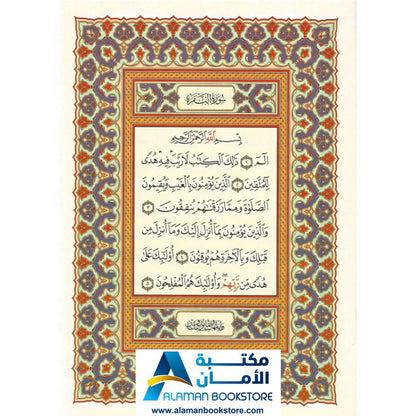 سُورَةُ البَقَرَةِ
بِسْمِ اللَّهِ الرَّحْمَٰنِ الرَّحِيمِ
الٓمٓ ١ ذَٰلِكَ الْكِتَابُ لَا رَيْبَ فِيهِ هُدًى
لِلْمُتَّقِينَ ٢ الَّذِينَ يُؤْمِنُونَ بِالْغَيْبِ وَيُقِيمُونَ
الصَّلَوٰةَ وَمِمَّا رَزَقْنَاهُمْ يُنْفِقُونَ ٣
وَالَّذِينَ يُؤْمِنُونَ بِمَا أُنْزِلَ إِلَيْكَ وَمَا أُنْزِلَ مِنْ
قَبْلِكَ وَبِالْآخِرَةِ هُمْ يُوقِنُونَ ٤ أُولَٰئِكَ عَلَىٰ
هُدًى مِنْ رَبِّهِمْ وَأُولَٰئِكَ هُمُ الْمُفْلِحُونَ ٥
مكتبة
الأمان
ALAMAN BOOKSTORE
www.alamanbookstore.com